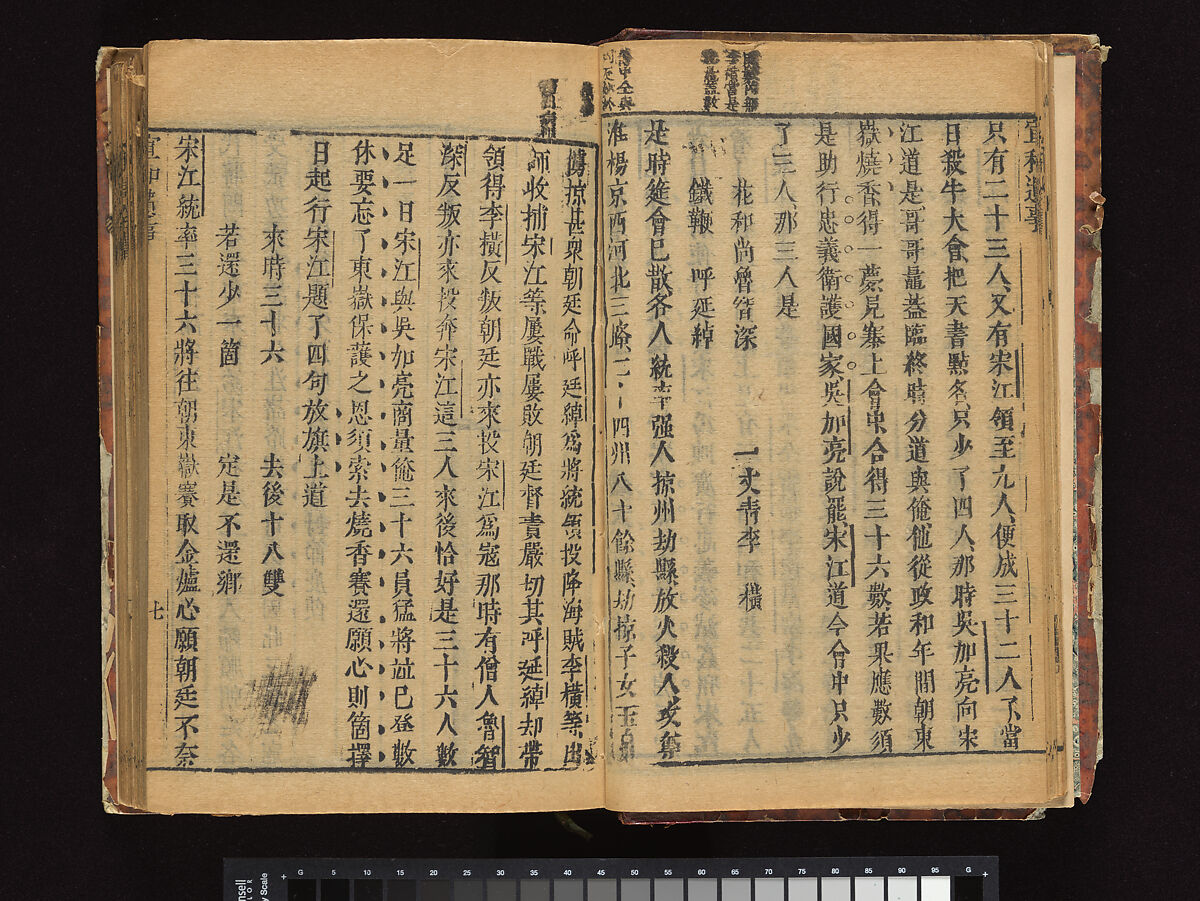 宣和遺事
只有二十三人又有宋江領至九人便成三十二人了當
日殺牛大會把天書點名只少了四人那時吳加亮向宋
江道是哥哥鼂蓋臨終時分道與俺他從政和年間朝東
嶽燒香得一夢見寨上會中合得三十六數若果應數須
是助行忠義衛護國家吳加亮說罷宋江道今會中只少
了三人那三人是
花和尚魯智深 一丈青李橫
鐵鞭呼延綽
是時筵會已散各人統率强人掠州劫縣放火殺人攻奪
淮楊京西河北三路二十四州八十餘縣劫掠子女玉帛
擄掠甚衆朝廷命呼延綽爲將統領投降海賊李橫等出
師收捕宋江等屢戰屢敗朝廷督責嚴切其呼延綽却帶
領得李橫反叛朝廷亦來投宋江爲寇那時有僧人魯智
深反叛亦來投奔宋江這三人來後恰好是三十六人數
足一日宋江與吳加亮商量俺三十六員猛將並已登數
休要忘了東嶽保護之恩須索去燒香賽還願心則箇擇
日起行宋江題了四句放旗上道
來時三十六 去後十八雙
若還少一箇 定是不還鄉
宋江統率三十六將往朝東嶽賽取金爐心願朝廷不奈
宣和遺事 七
0 5 10 15 20 25 30 35 40 45 50 55 60 65 70 75 80 85 90 95